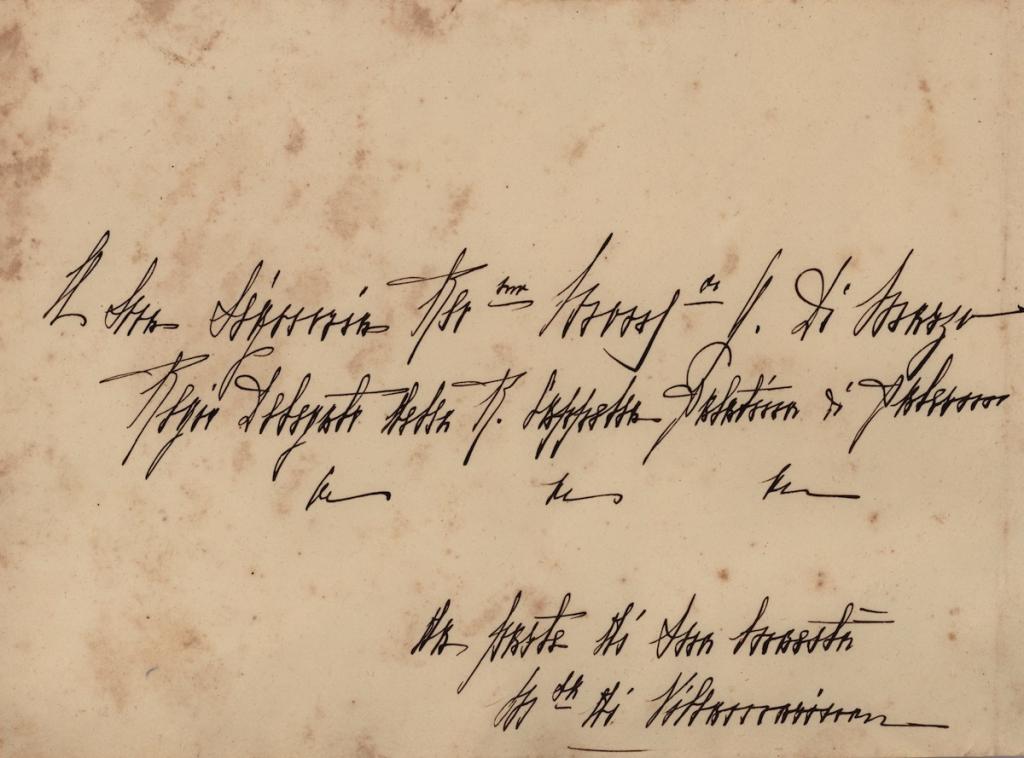 A Sua Signoria Rev.ma Monsig.re G. Di Marzo
Regio Delegato della R. Cappella Palatina di Palermo
da parte di Sua Maestà
di Villamarina